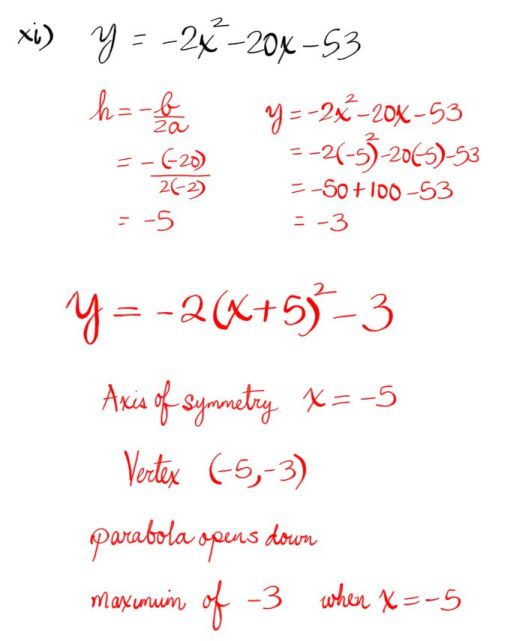 xi) y = -2x² - 20x - 53
h = -b/2a
= -(-20)/2(-2)
= -5
y = -2x² - 20x - 53
= -2(-5²) - 20(-5) - 53
= -50 + 100 - 53
= -3
y = -2(x+5)² - 3
Axis of symmetry x = -5
Vertex (-5, -3)
parabola opens down
maximum of -3 when x = -5